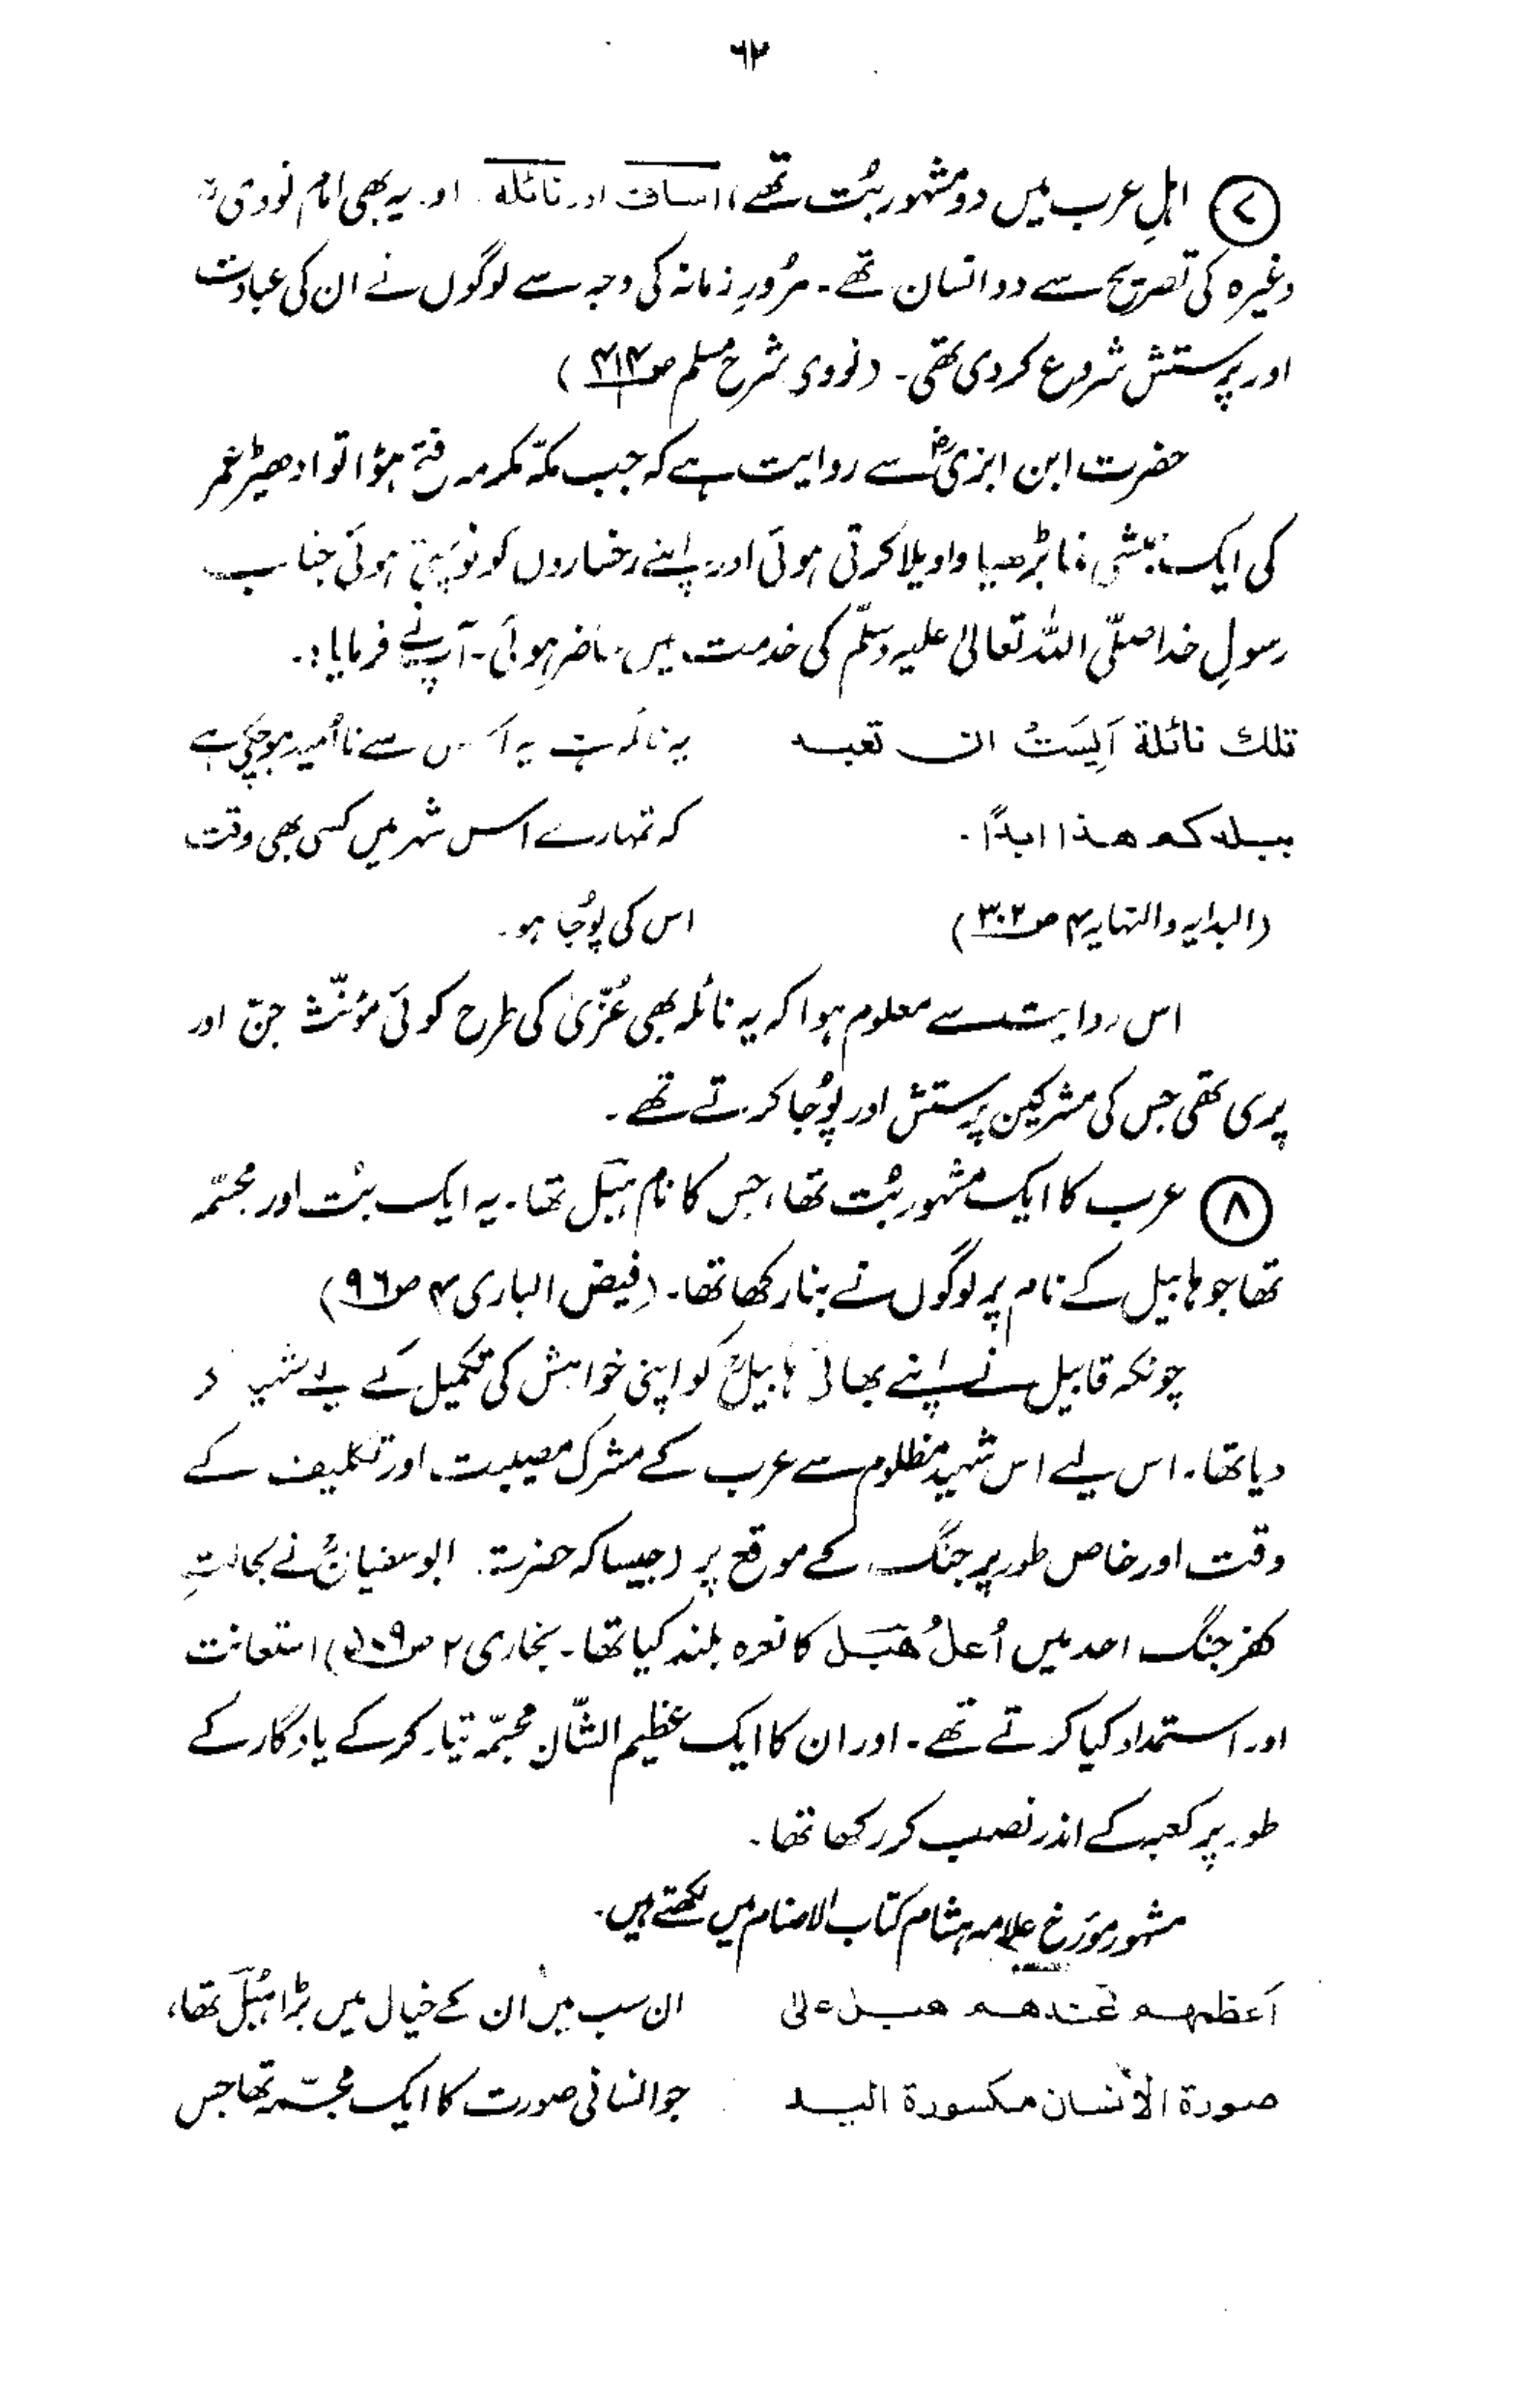 ٦٢
⑦ اہلِ عرب میں دو مشہور بُت تھے، اساف اور نائلہ۔ اور یہ بھی امام نوویؒ
وغیرہ کی تصریح سے دو انسان تھے۔ مُرورِ زمانہ کی وجہ سے لوگوں نے ان کی عبادت
اور پرستش شروع کر دی تھی۔ (نووی شرح مسلم ص۴۱۴)
حضرت ابن ابزیٰؓ سے روایت ہے کہ جب مکّہ مکرمہ فتح ہؤا تو ادھیڑ عمر
کی ایک بڑھیا واویلا کرتی ہوئی اور اپنے رخساروں کو نوچتی ہوئی جناب
رسولِ خدا صلّی اللہ تعالیٰ علیہ وسلّم کی خدمت میں حاضر ہوئی۔ آپ نے فرمایا:۔
تلك نائلة اَيِسَتْ ان تعبد
ببلدكم هذا ابدًا۔
(البدایہ والنہایہ ۴ ص۳۰۲)
یہ نائلہ ہے یہ اس سے نا اُمید ہو چکی ہے
کہ تمہارے اس شہر میں کسی بھی وقت
اس کی پُوجا ہو۔
اس روایت سے معلوم ہوا کہ یہ نائلہ بھی عُزّیٰ کی طرح کوئی مؤنّث جنّ اور
پری تھی جس کی مشرکین پرستش اور پُوجا کرتے تھے۔
⑧ عرب کا ایک مشہور بُت تھا، جس کا نام ہبَل تھا۔ یہ ایک بُت اور مجسّمہ
تھا جو ہابیل کے نام پر لوگوں نے بنا رکھا تھا۔ (فیض الباری ۴ ص۹۶)
چونکہ قابیل نے اپنے بھائی ہابیلؑ کو اپنی خواہش کی تکمیل کے لیے شہید کر
دیا تھا۔ اس لیے اس شہید مظلوم سے عرب کے مشرک مصیبت اور تکلیف کے
وقت اور خاص طور پر جنگ کے موقع پر (جیسا کہ حضرت ابوسفیانؓ نے بحالتِ
کفر جنگ احد میں اُعلُ هُبَل کا نعرہ بلند کیا تھا۔ بخاری ۲ ص۵۰۹) استعانت
اور استمداد کیا کرتے تھے۔ اور ان کا ایک عظیم الشّان مجسّمہ تیار کر کے یادگار کے
طور پر کعبہ کے اندر نصب کر رکھا تھا۔
مشہور مؤرخ علامہ ہشام کتاب الاصنام میں لکھتے ہیں۔
اَعظمهم عندهم هبل على
صورة الانسان مكسورة اليد
ان سب میں ان کے خیال میں بڑا ہُبَل تھا،
جو انسانی صورت کا ایک مجسّمہ تھا جس